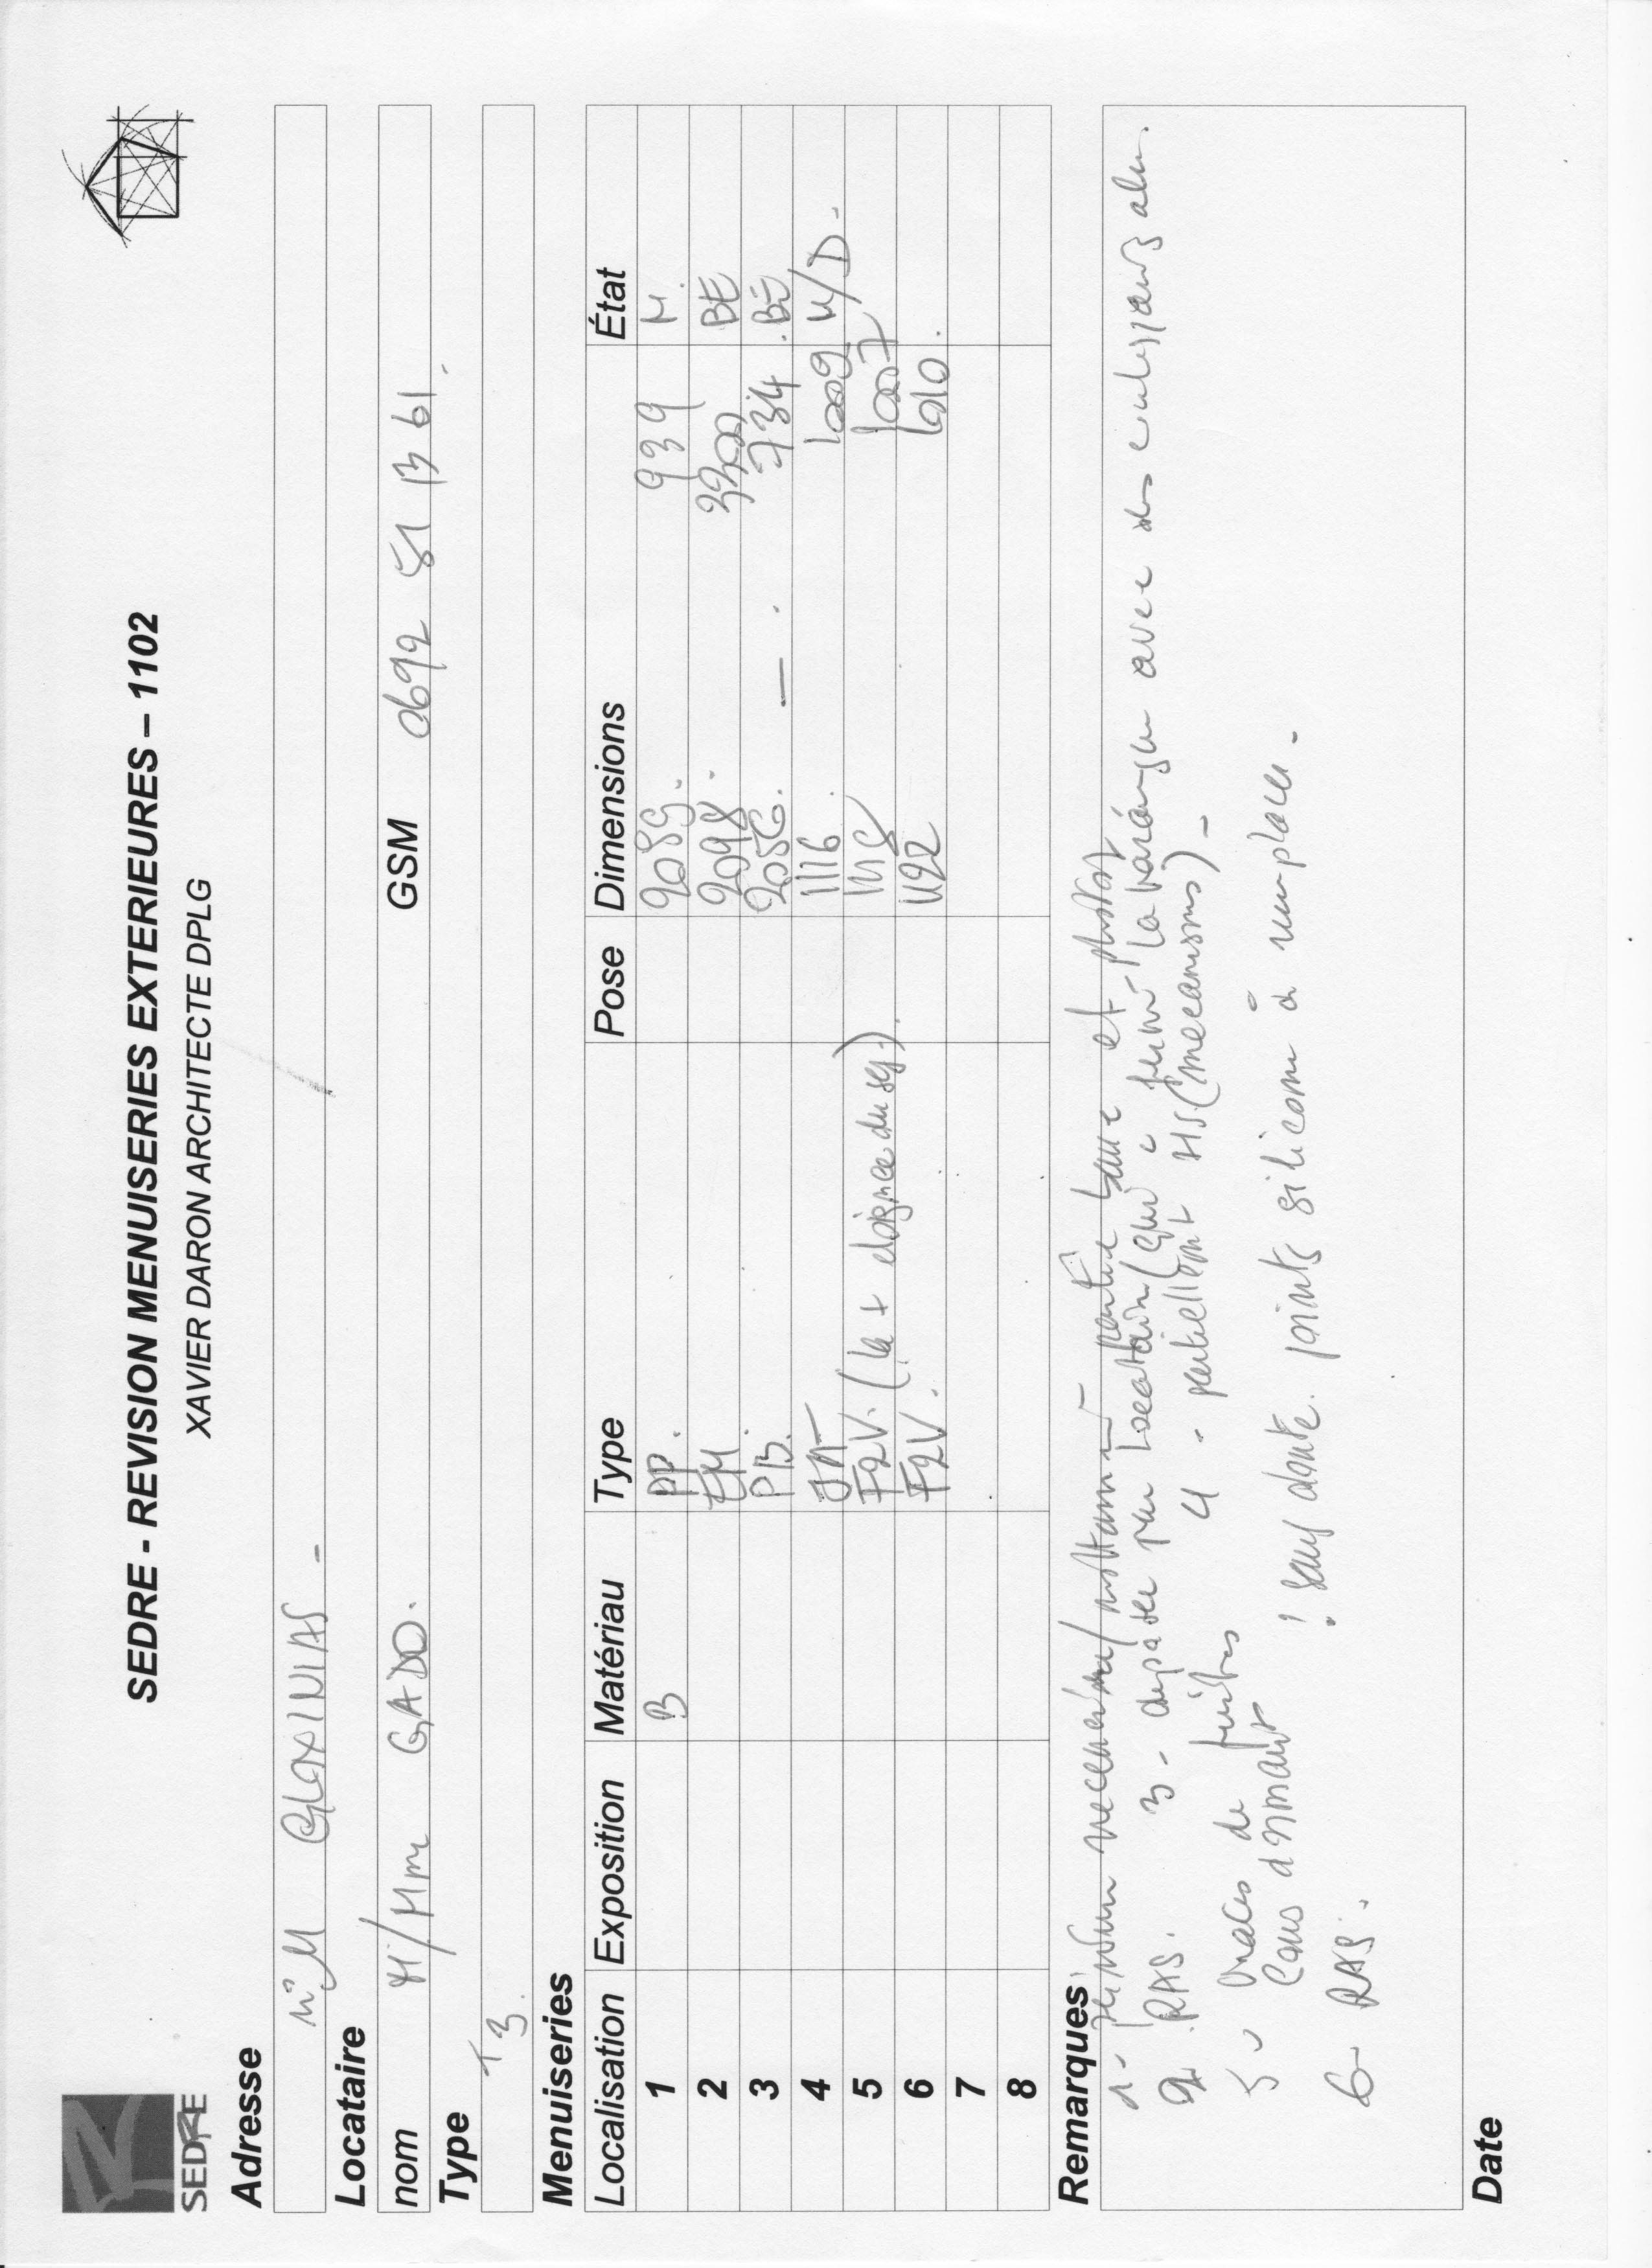 SEDRE
SEDRE - REVISION MENUISERIES EXTERIEURES – 1102
XAVIER DARON ARCHITECTE DPLG
Adresse
GLOXINIAS -
Locataire
nom M/Mme GADO. GSM 0692 51 13 61.
Type
T3.
Menuiseries
Localisation Exposition Matériau Type Pose Dimensions État
1 B PP. 2085. 939 M.
2 2098. BE
3 PB. 2056. — 734. BE
4 1116. 1009 M/D.
5 F2V. (la + eloignee du sej.) 1007
6 F2V. 1122 1010.
7
8
Remarques
1- partie basse et
2. RAS. 3- par locataire (qui a fermé la varangue avec des coulissants alu.
4 - partiellement HS (mecanismes) -
5 - traces de fuites
! sans doute joints silicone à remplacer -
6- RAS.
Date